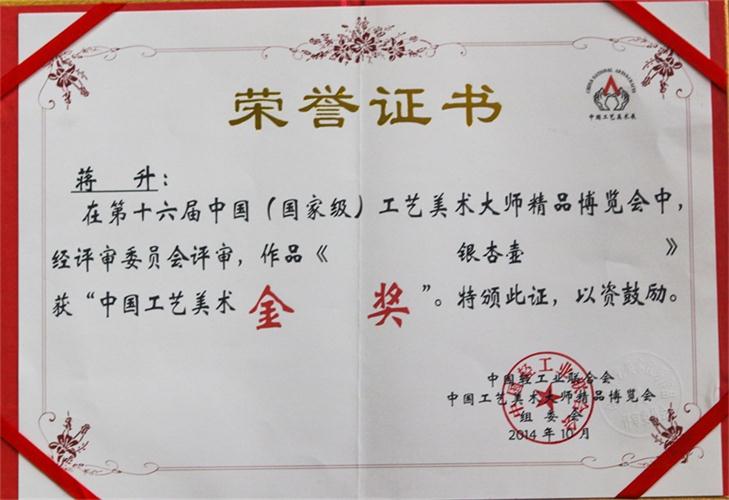 荣誉证书
中国工艺美术展
蒋 升：
在第十六届中国（国家级）工艺美术大师精品博览会中，
经评审委员会评审，作品《 银杏壶 》
获“中国工艺美术 金 奖 ”。特颁此证，以资鼓励。
中国轻工业联合会
中国工艺美术大师精品博览会
组 委 会
2014 年 10 月